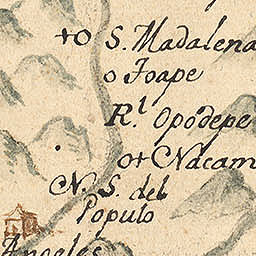 S. Madalena
Joape
R.l Opodepe
Nacam
N. S. del
Populo
Angeles